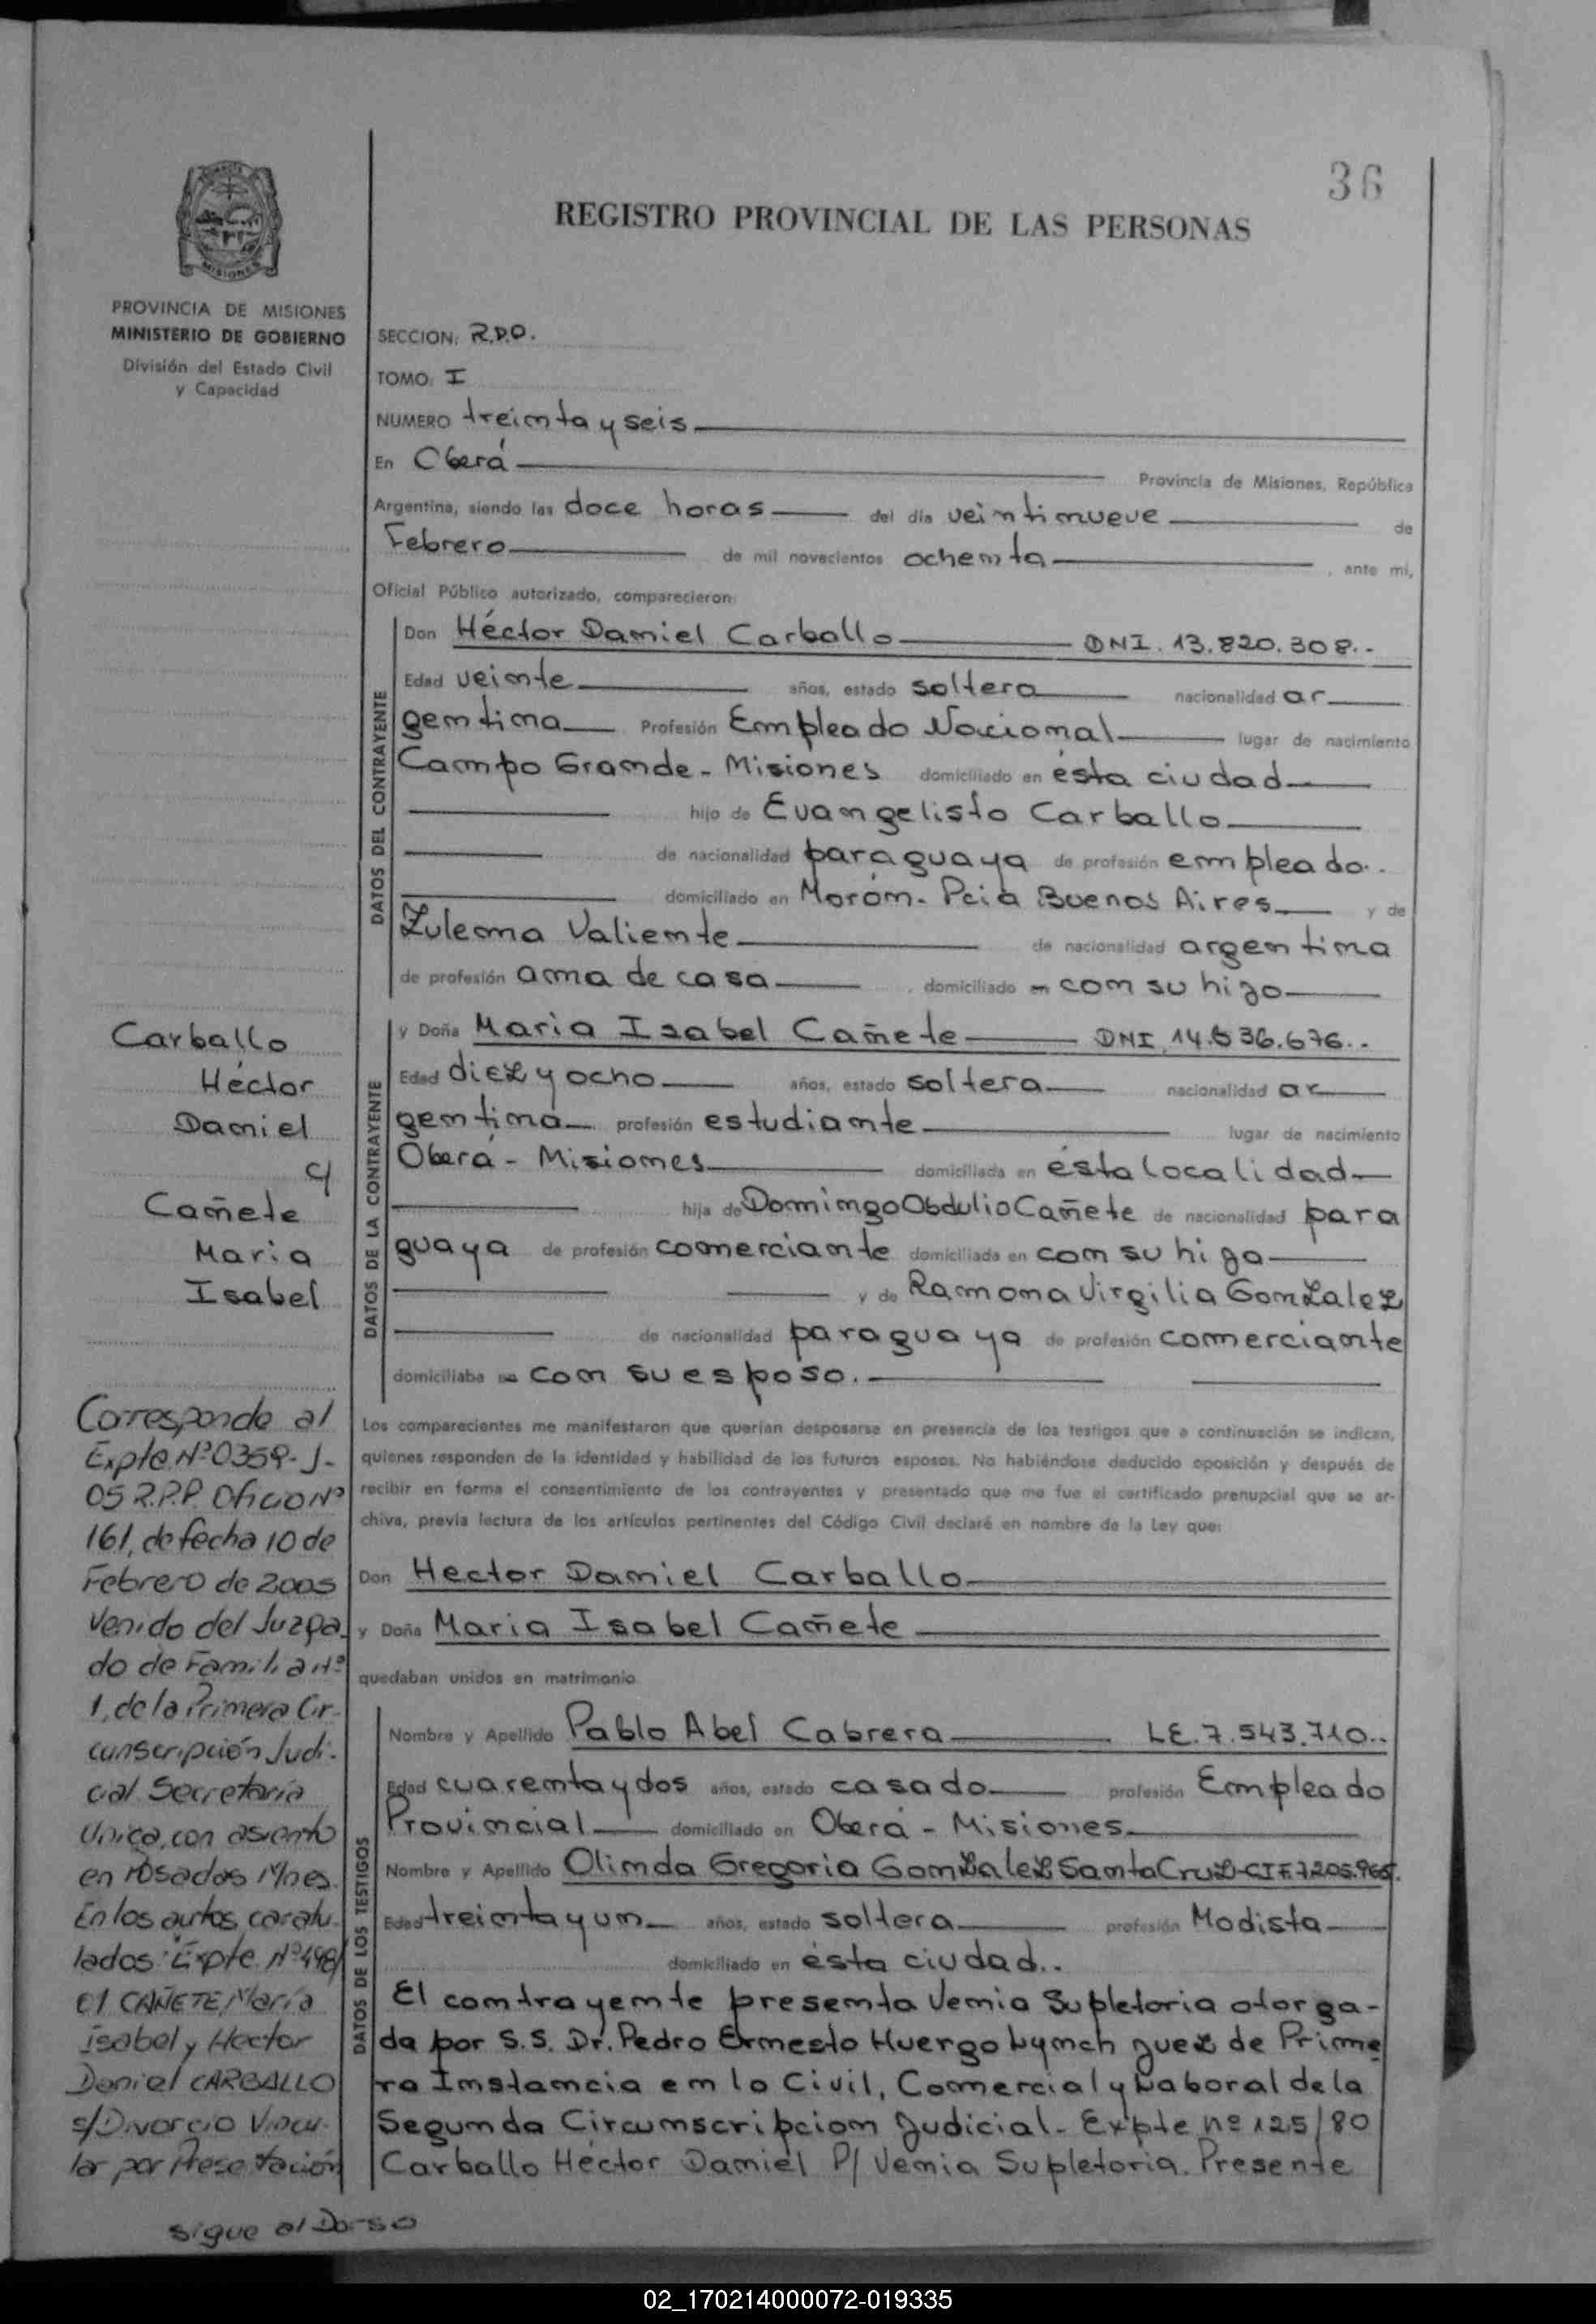 36
REGISTRO PROVINCIAL DE LAS PERSONAS
MISIONES
PROVINCIA DE MISIONES
MINISTERIO DE GOBIERNO
División del Estado Civil
y Capacidad
SECCION: R.D.O.
TOMO: I
NUMERO treinta y seis
En Oberá Provincia de Misiones, República
Argentina, siendo las doce horas del día veintinueve de
Febrero de mil novecientos ochenta, ante mi,
Oficial Público autorizado, comparecieron:
DATOS DEL CONTRAYENTE
Don Héctor Daniel Carballo DNI. 13.820.308.-
Edad veinte años, estado soltera nacionalidad ar
gentina Profesión Empleado Nacional lugar de nacimiento
Campo Grande - Misiones domiciliado en ésta ciudad
hijo de Evangelisto Carballo
de nacionalidad paraguaya de profesión empleado.-
domiciliado en Morón. Pcia Buenos Aires y de
Zulema Valiente de nacionalidad argentina
de profesión ama de casa, domiciliado en con su hijo
DATOS DE LA CONTRAYENTE
y Doña Maria Isabel Cañete DNI. 14.636.676.-
Edad diez y ocho años, estado soltera nacionalidad ar
gentina profesión estudiante lugar de nacimiento
Oberá - Misiones domiciliada en ésta localidad
hija de Domingo Obdulio Cañete de nacionalidad para
guaya de profesión comerciante domiciliada en con su hija
y de Ramona Virgilia Gonzalez
de nacionalidad paraguaya de profesión comerciante
domiciliaba en con su esposo.
Los comparecientes me manifestaron que querían desposarse en presencia de los testigos que a continuación se indican,
quienes responden de la identidad y habilidad de los futuros esposos. No habiéndose deducido oposición y después de
recibir en forma el consentimiento de los contrayentes y presentado que me fue el certificado prenupcial que se ar-
chiva, previa lectura de los artículos pertinentes del Código Civil declaré en nombre de la Ley que:
Don Hector Daniel Carballo
y Doña Maria Isabel Cañete
quedaban unidos en matrimonio
DATOS DE LOS TESTIGOS
Nombre y Apellido Pablo Abel Cabrera LE. 7.543.710.-
Edad cuarenta y dos años, estado casado profesión Empleado
Provincial domiciliado en Oberá - Misiones
Nombre y Apellido Olinda Gregoria Gonzalez Santa Cruz
Edad treinta y un años, estado soltera profesión Modista
domiciliado en ésta ciudad.-
El contrayente presenta Venia Supletoria otorga-
da por S.S. Dr. Pedro Ernesto Huergo Lynch Juez de Prime
ra Instancia en lo Civil, Comercial y Laboral de la
Segunda Circunscripcion Judicial - Expte nº 125/80
Carballo Héctor Daniel P/ Venia Supletoria. Presente
Carballo
Héctor
Daniel
c/
Cañete
Maria
Isabel
Corresponde al
Expte Nº 0359-J-
05 R.P.P. Oficio Nº
161, de fecha 10 de
Febrero de 2005
venido del Juzga
do de Familia Nº
1, de la Primera Cir-
cunscripción Judi-
cial Secretaría
Unica, con asiento
en Posadas Mnes.
En los autos caratu-
lados: Expte Nº 498/
01 CAÑETE, María
isabel y Hector
Daniel CARBALLO
s/Divorcio Vincu-
lar por Presetación
sigue al Dorso
02_170214000072-019335